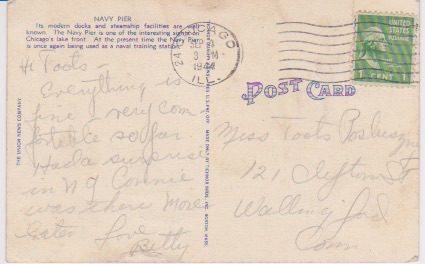 NAVY PIER
Its modern docks and steamship facilities are well
known. The Navy Pier is one of the interesting sights on
Chicago's lake front. At the present time the Navy Pier
is once again being used as a naval training station.
Hi Toots –
Everything is
fine & very com
fortable so far.
Had a surprise
in N Y Connie
was there More
Later Love
Betty
THE UNION NEWS COMPANY
CHICAGO
ILL.
UNITED STATES
1 CENT 1
POST CARD
Miss Toots
121 Clifton St
Wallingford
Conn